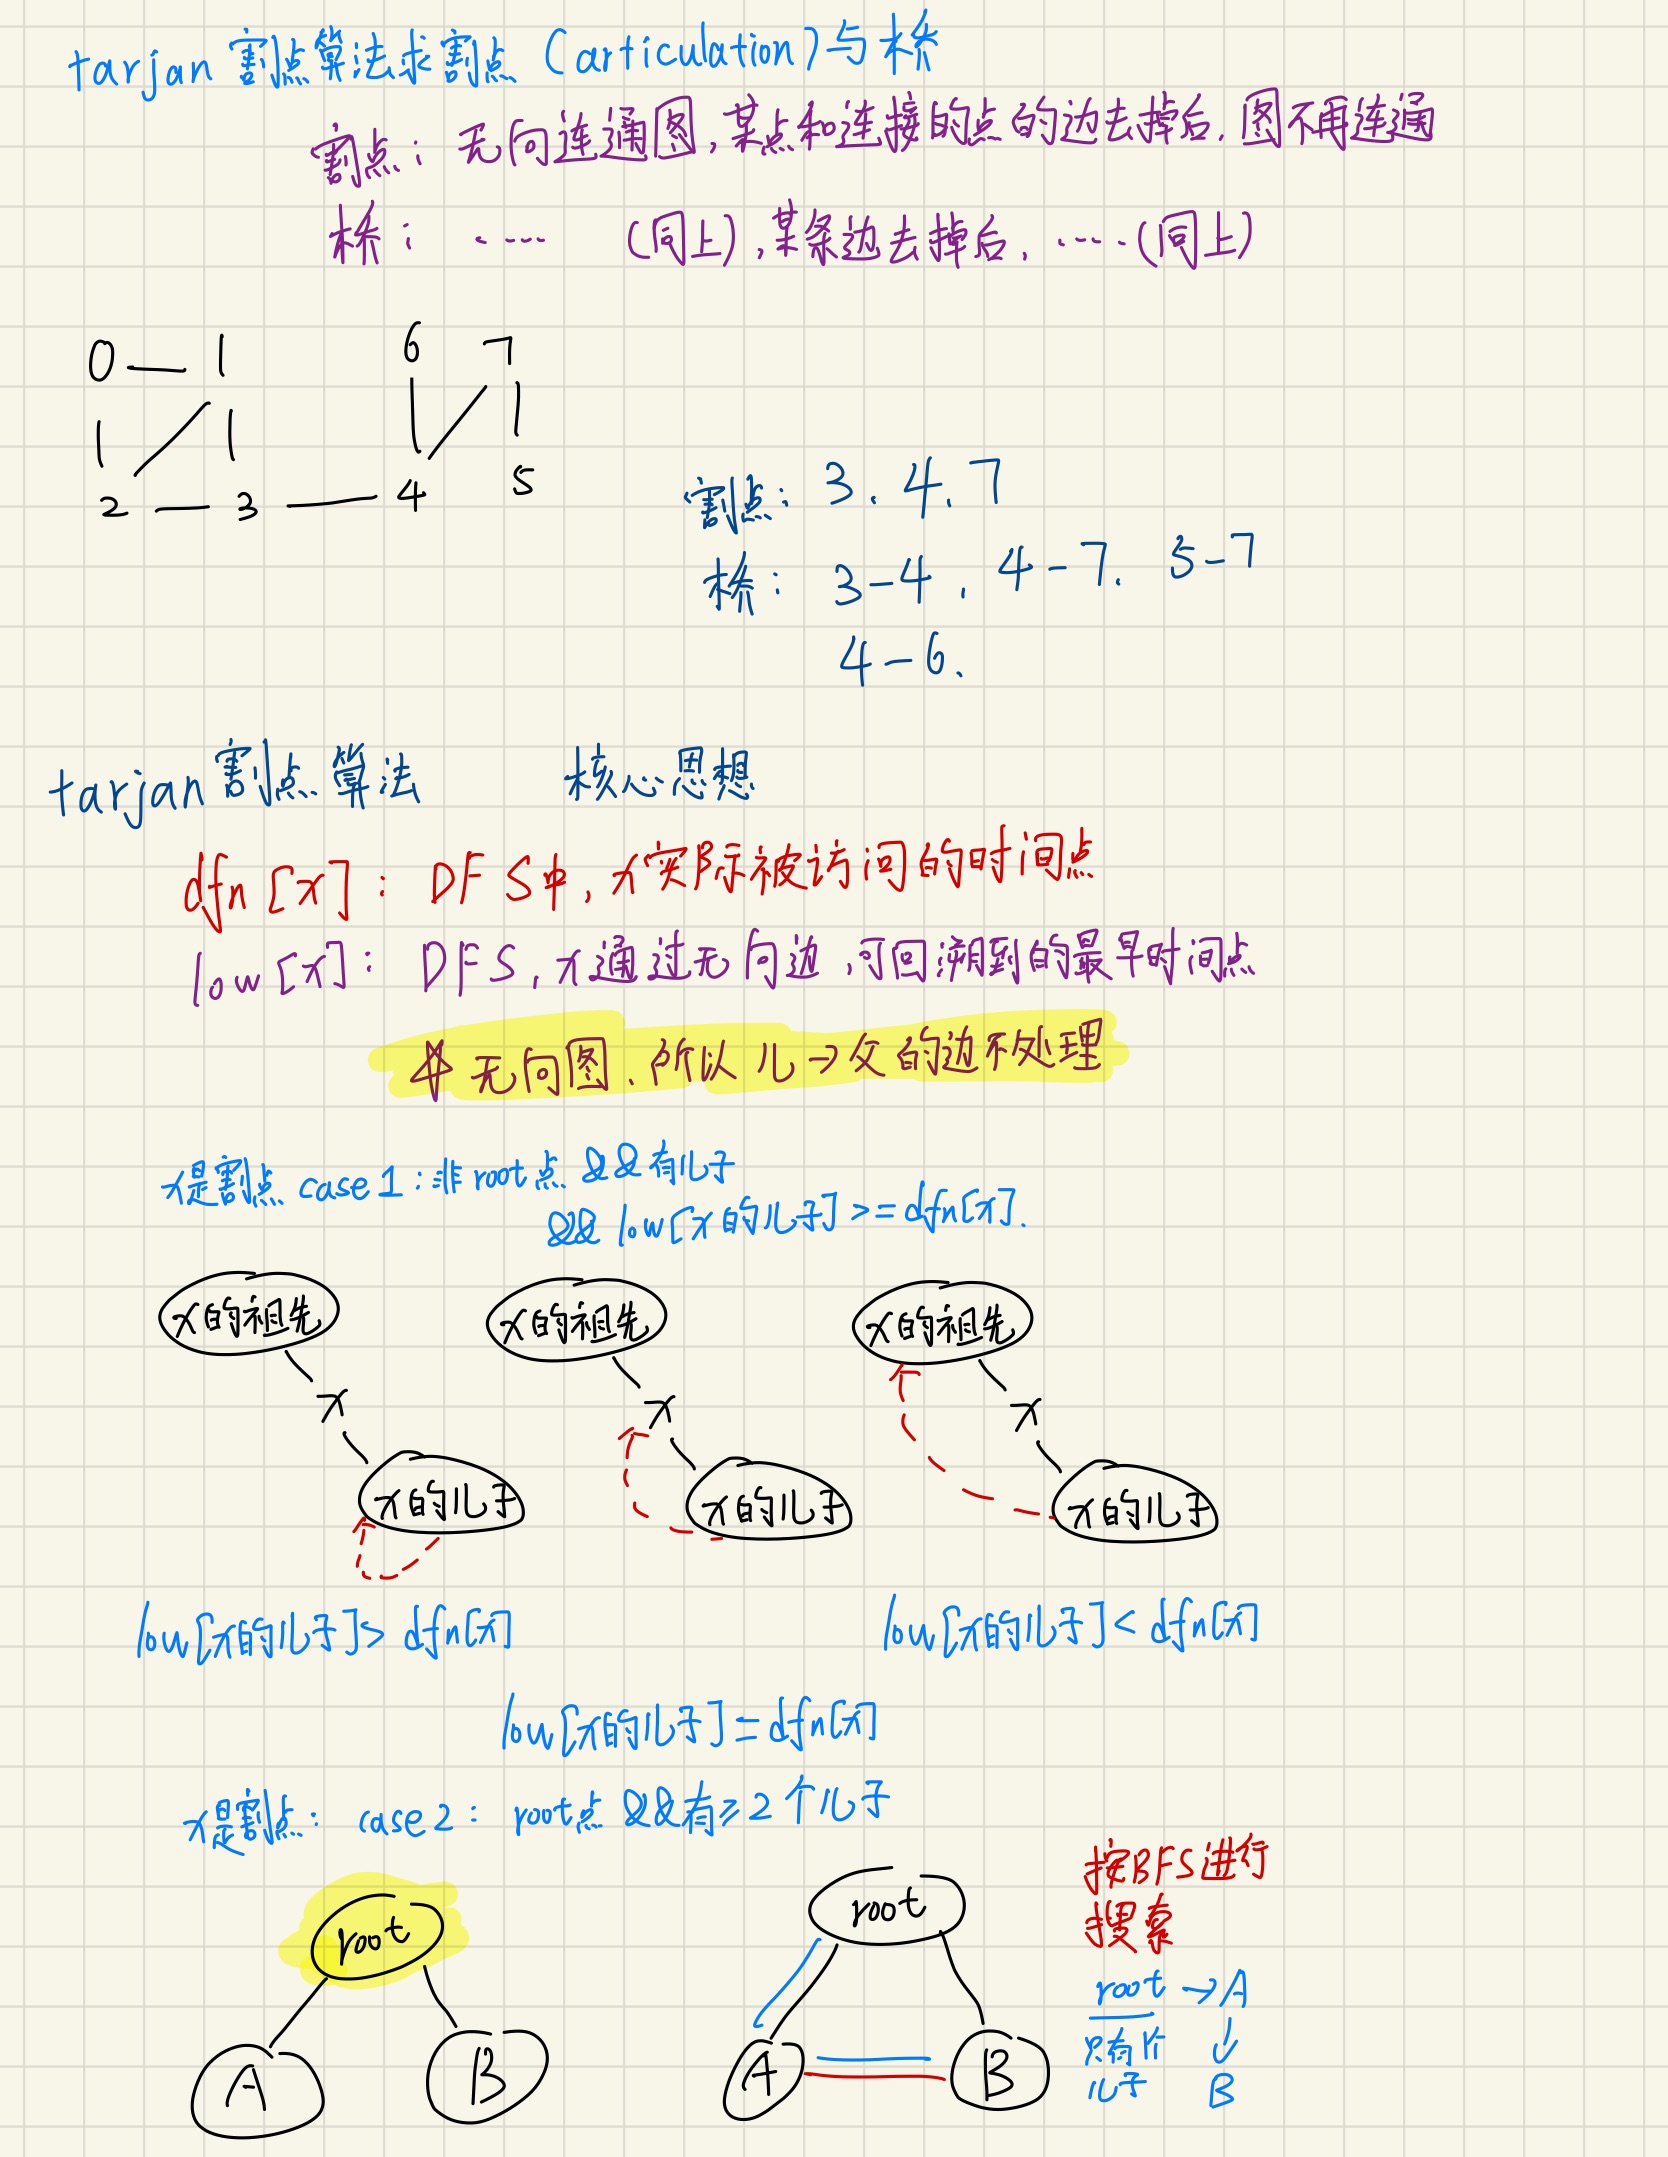 tarjan 割点算法求割点 (articulation) 与桥
割点: 无向连通图, 某点和连接的点的边去掉后, 图不再连通
桥: ..... (同上), 某条边去掉后, ..... (同上)
0 — 1 6 7
2 — 3 — 4 5
割点: 3、4、7
桥: 3-4, 4-7、5-7
4-6、
tarjan 割点算法 核心思想
dfn[x]: DFS中, x实际被访问的时间点
low[x]: DFS, x通过无向边, 可回溯到的最早时间点
* 无向图、所以 儿→父的边不处理
x是割点 case1: 非root点 && 有儿子
&& low[x的儿子] >= dfn[x].
x的祖先 x的祖先 x的祖先
x x x
x的儿子 x的儿子 x的儿子
low[x的儿子] > dfn[x] low[x的儿子] < dfn[x]
low[x的儿子] = dfn[x]
x是割点: case2: root点 && 有≥2个儿子
root root
A B A B
按BFS进行
搜索
root → A
只有1个 ↓
儿子 B